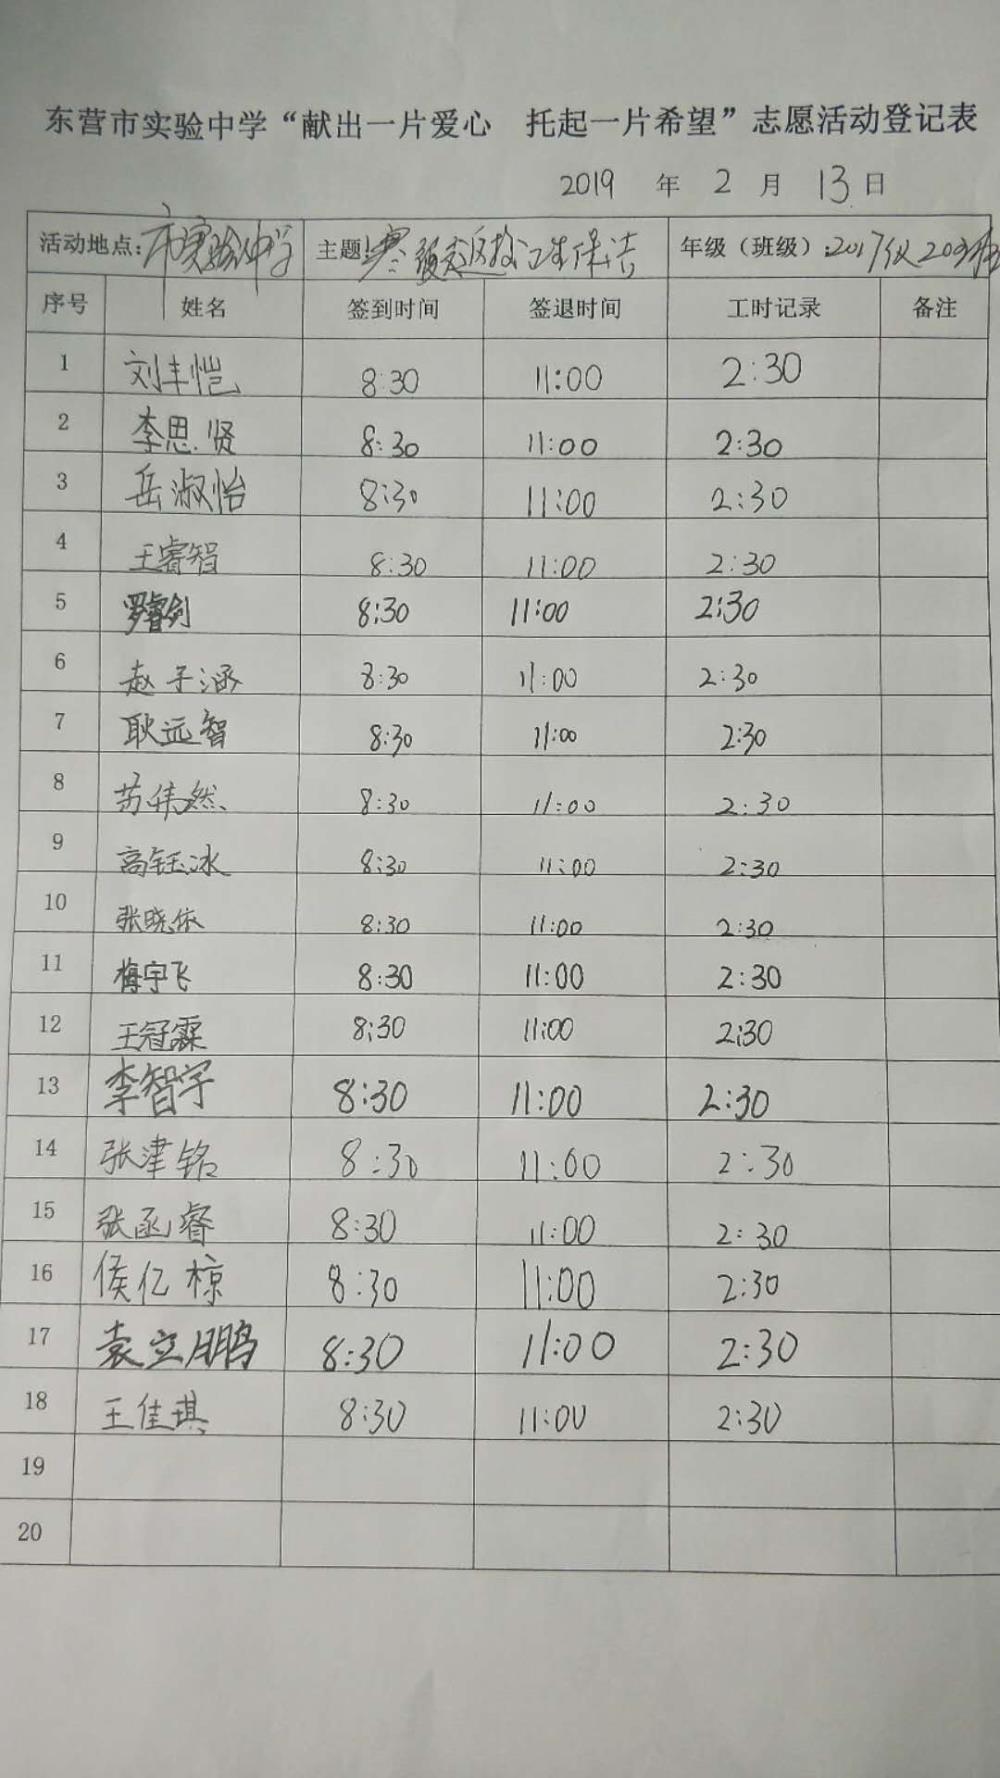 东营市实验中学“献出一片爱心 托起一片希望”志愿活动登记表
2019 年 2 月 13 日
活动地点: 市实验中学 主题: 寒假返校卫生保洁 年级（班级）: 2017级
序号 姓名 签到时间 签退时间 工时记录 备注
1 刘丰恺 8:30 11:00 2:30
2 李思贤 8:30 11:00 2:30
3 岳淑怡 8:30 11:00 2:30
4 王睿智 8:30 11:00 2:30
5 罗睿剑 8:30 11:00 2:30
6 赵子涵 8:30 11:00 2:30
7 耿远智 8:30 11:00 2:30
8 苏伟然 8:30 11:00 2:30
9 高钰冰 8:30 11:00 2:30
10 张晓依 8:30 11:00 2:30
11 梅宇飞 8:30 11:00 2:30
12 王冠霖 8:30 11:00 2:30
13 李智宇 8:30 11:00 2:30
14 张津铭 8:30 11:00 2:30
15 张函睿 8:30 11:00 2:30
16 侯亿椋 8:30 11:00 2:30
17 袁立鹏 8:30 11:00 2:30
18 王佳琪 8:30 11:00 2:30
19
20